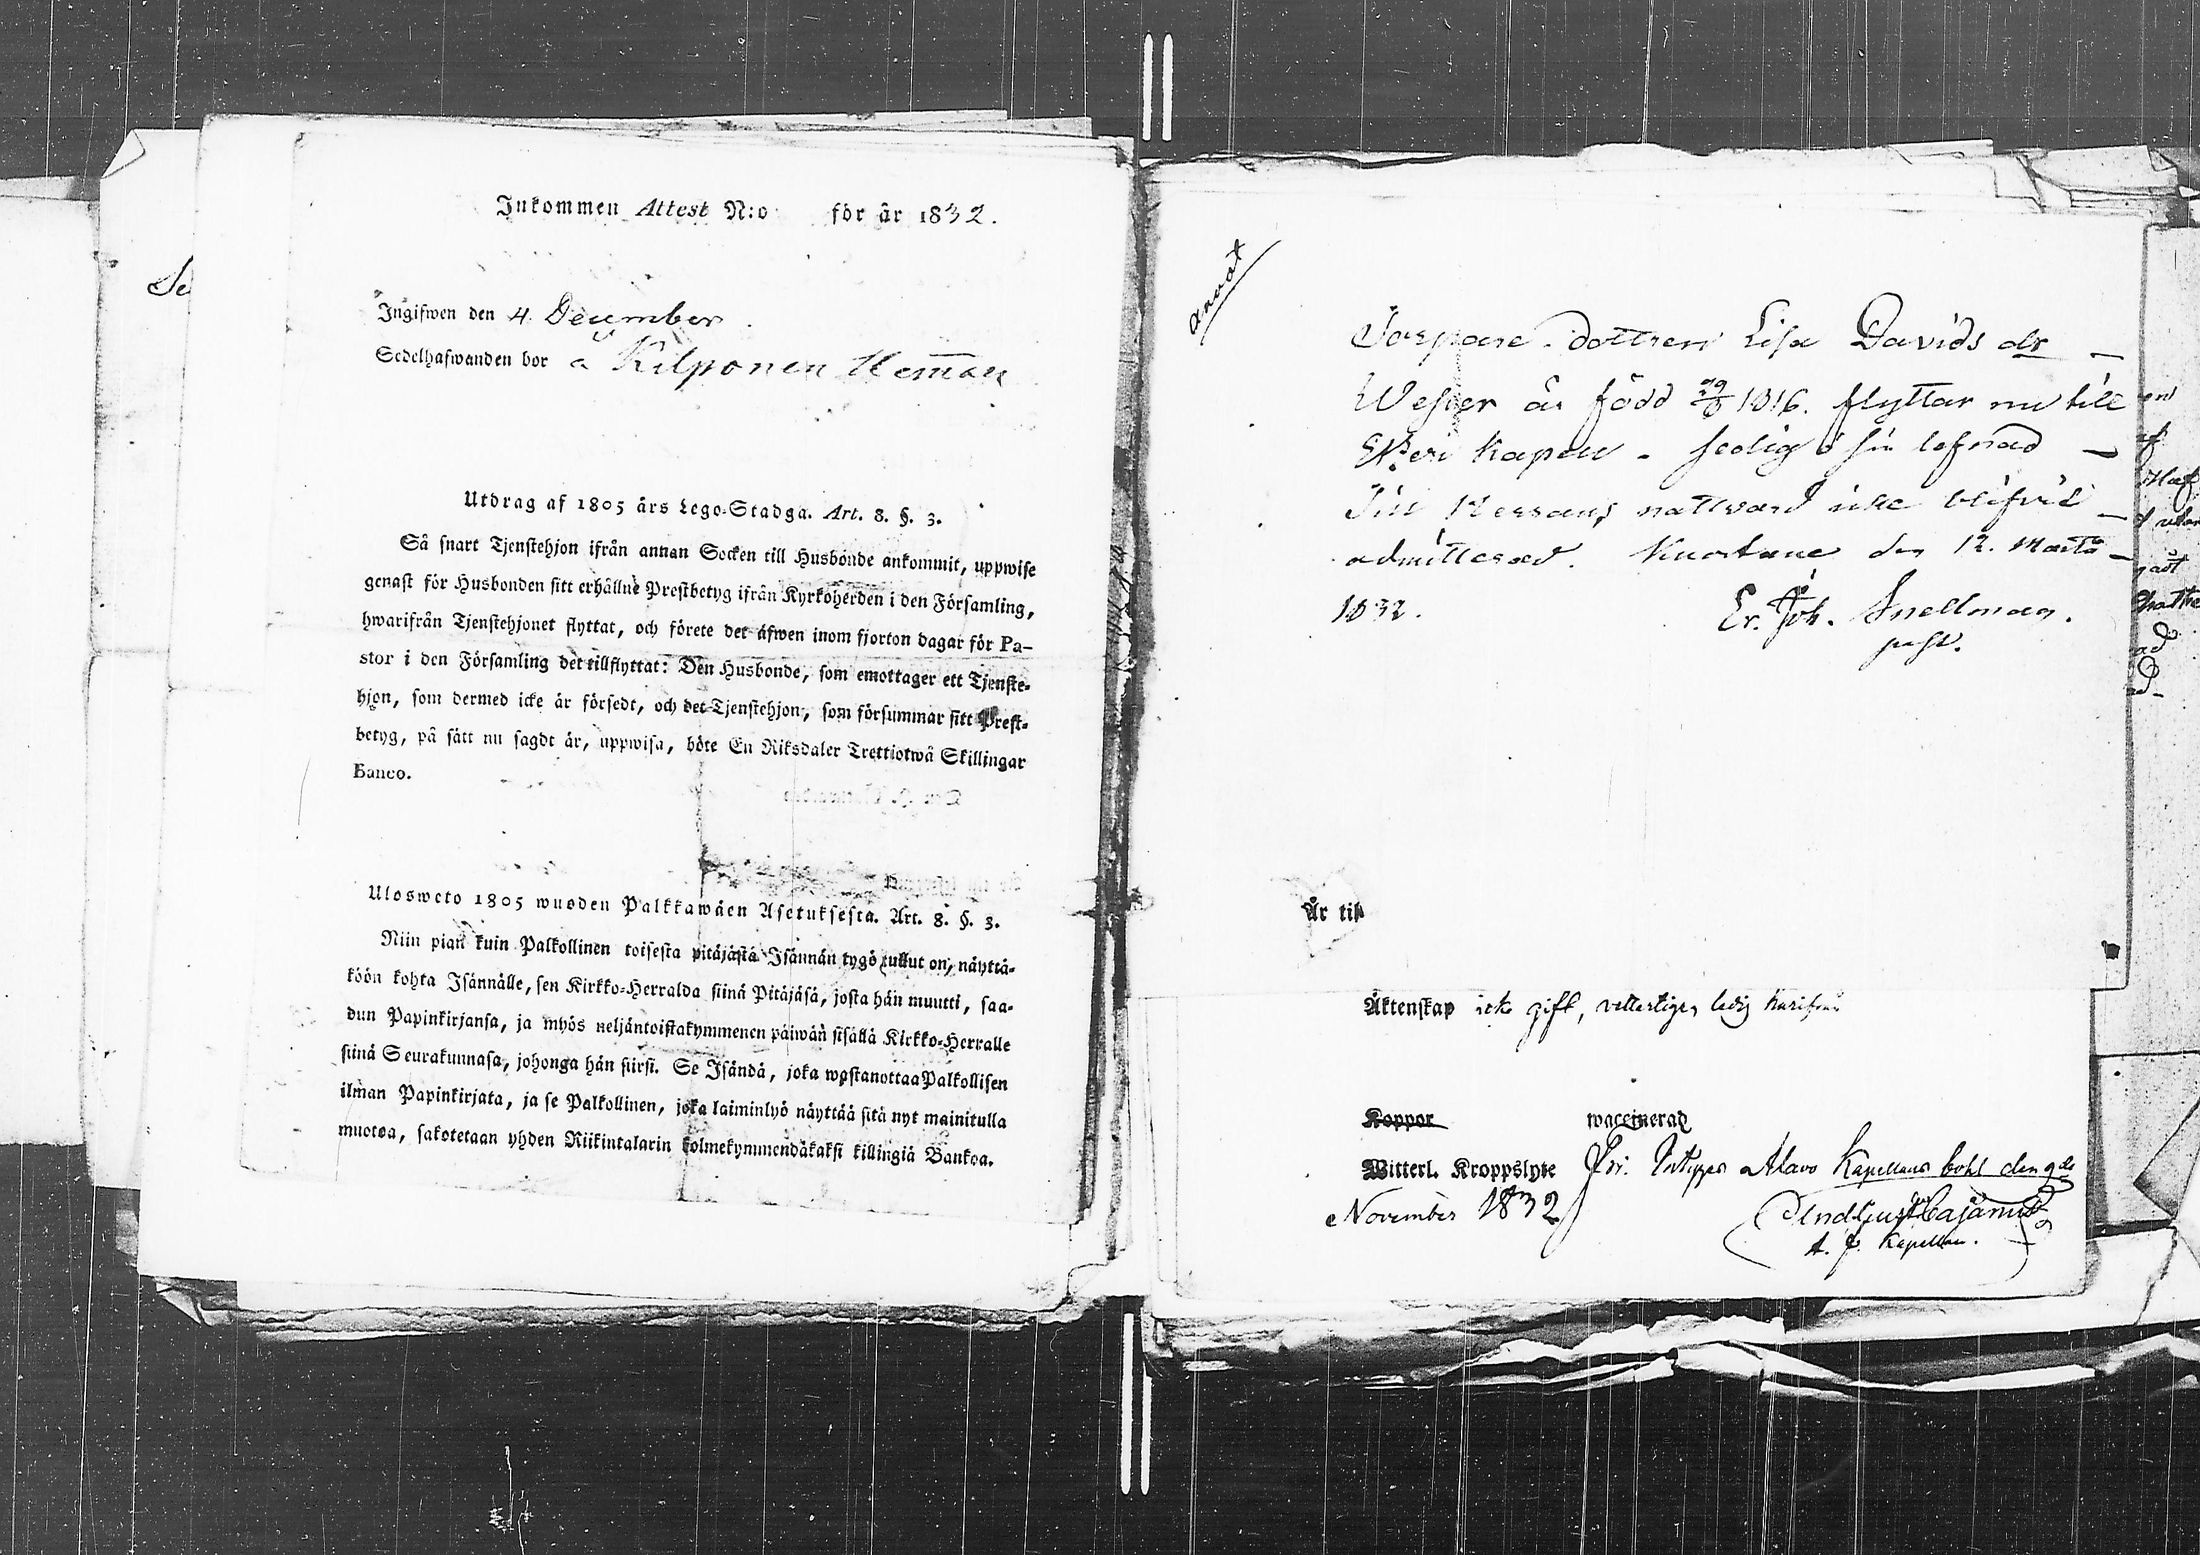 Inkommen Attest N:o för år 1832.
Ingifwen den 4 December.
Sedelhafwanden bor å Kilponen Heman
Utdrag af 1805 års Lego-Stadga. Art. 8. §. 3.
Så snart Tjenstehjon ifrån annan Socken till Husbonde ankommit, uppwise
genast för Husbonden sitt erhållne Prestbetyg ifrån Kyrkoherden i den Församling,
hwarifrån Tjenstehjonet flyttat, och förete det äfwen inom fjorton dagar för Pa-
stor i den Församling det tillflyttat: Den Husbonde, som emottager ett Tjenste-
hjon, som dermed icke är försedt, och det Tjenstehjon, som försummar sitt Prest-
betyg, på sätt nu sagdt är, uppwisa, böte En Riksdaler Trettiotwå Skillingar
Banco.
Ulosweto 1805 wuoden Palkkawäen Asetuksesta. Art. 8. §. 3.
Niin pian kuin Palkollinen toisesta pitäjästä Isännän tygö tullut on, näyttä-
köön kohta Isännälle, sen Kirkko-Herralda siinä Pitäjäsä, josta hän muutti, saa-
dun Papinkirjansa, ja myös neljäntoistakymmenen päiwän sisällä Kirkko-Herralle
siinä Seurakunnasa, johonga hän siirsi. Se Isändä, joka wastanottaa Palkollisen
ilman Papinkirjata, ja se Palkollinen, joka laiminlyö näyttää sitä nyt mainitulla
muotoa, sakotetaan yhden Riikintalarin kolmekymmendäkaksi killingiä Bankoa.
Torpare dottren Lisa Davids dr
är född 1816. flyttar nu till
Kapell - sedig i sin lefnad
Till nattvard icke blifvit
admitterad. Kuortane den 12. Martii
1832.
Er. Joh. Snellman.
past.
År til
Äktenskap icke gift, ledig
Koppor waccinerad
Witterl. Kroppslyte Alavo Kapellans bohl den 9de
November 1832
And Gust Cajanus
A. f. Kapellan.